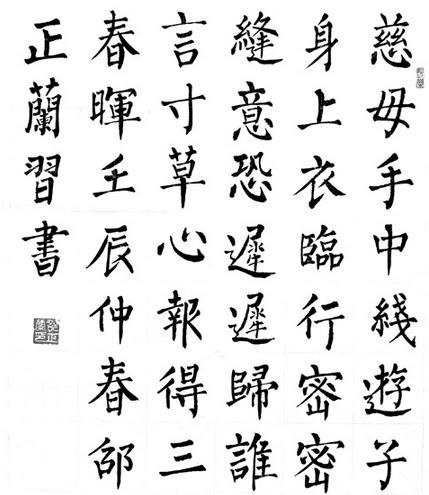 慈母手中綫遊子
身上衣臨行密密
縫意恐遲遲歸誰
言寸草心報得三
春暉壬辰仲春邵
正蘭習書